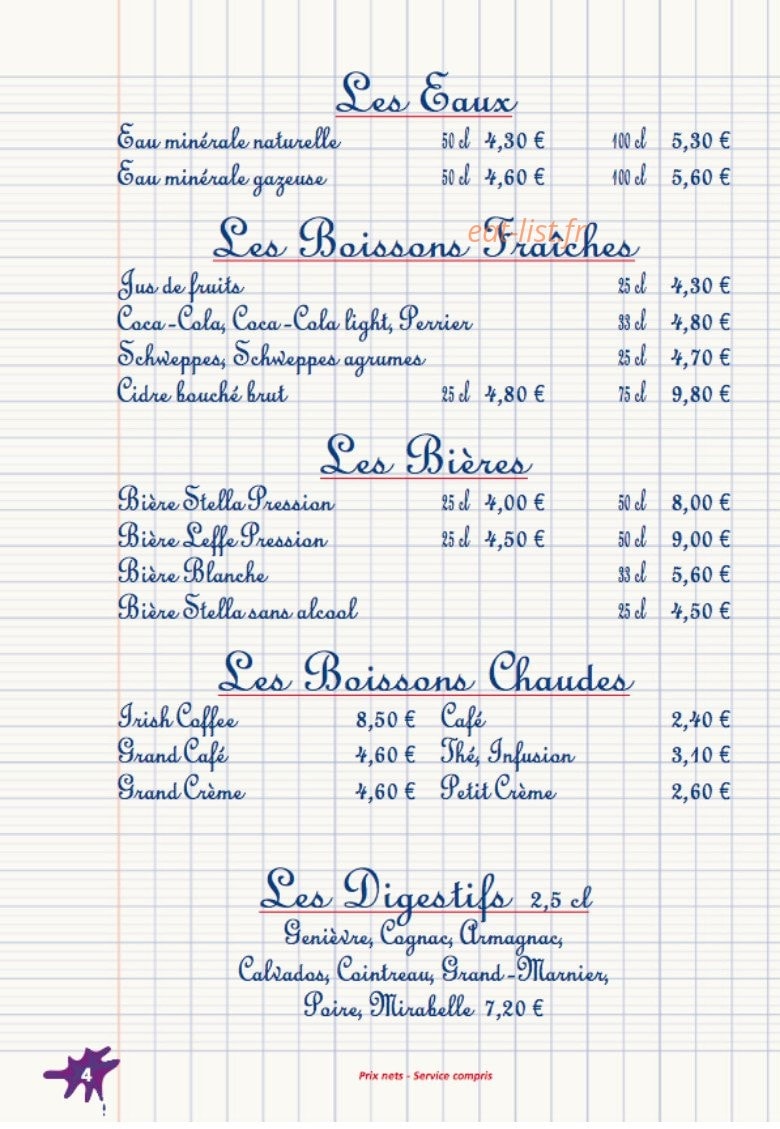 Les Eaux
Eau minérale naturelle 50 cl 4,30 € 100 cl 5,30 €
Eau minérale gazeuse 50 cl 4,60 € 100 cl 5,60 €
eat-list.fr
Les Boissons Fraîches
Jus de fruits 25 cl 4,30 €
Coca-Cola, Coca-Cola light, Perrier 33 cl 4,80 €
Schweppes, Schweppes agrumes 25 cl 4,70 €
Cidre bouché brut 25 cl 4,80 € 75 cl 9,80 €
Les Bières
Bière Stella Pression 25 cl 4,00 € 50 cl 8,00 €
Bière Leffe Pression 25 cl 4,50 € 50 cl 9,00 €
Bière Blanche 33 cl 5,60 €
Bière Stella sans alcool 25 cl 4,50 €
Les Boissons Chaudes
Irish Coffee 8,50 € Café 2,40 €
Grand Café 4,60 € Thé, Infusion 3,10 €
Grand Crème 4,60 € Petit Crème 2,60 €
Les Digestifs 2,5 cl
Genièvre, Cognac, Armagnac,
Calvados, Cointreau, Grand-Marnier,
Poire, Mirabelle 7,20 €
4
Prix nets - Service compris